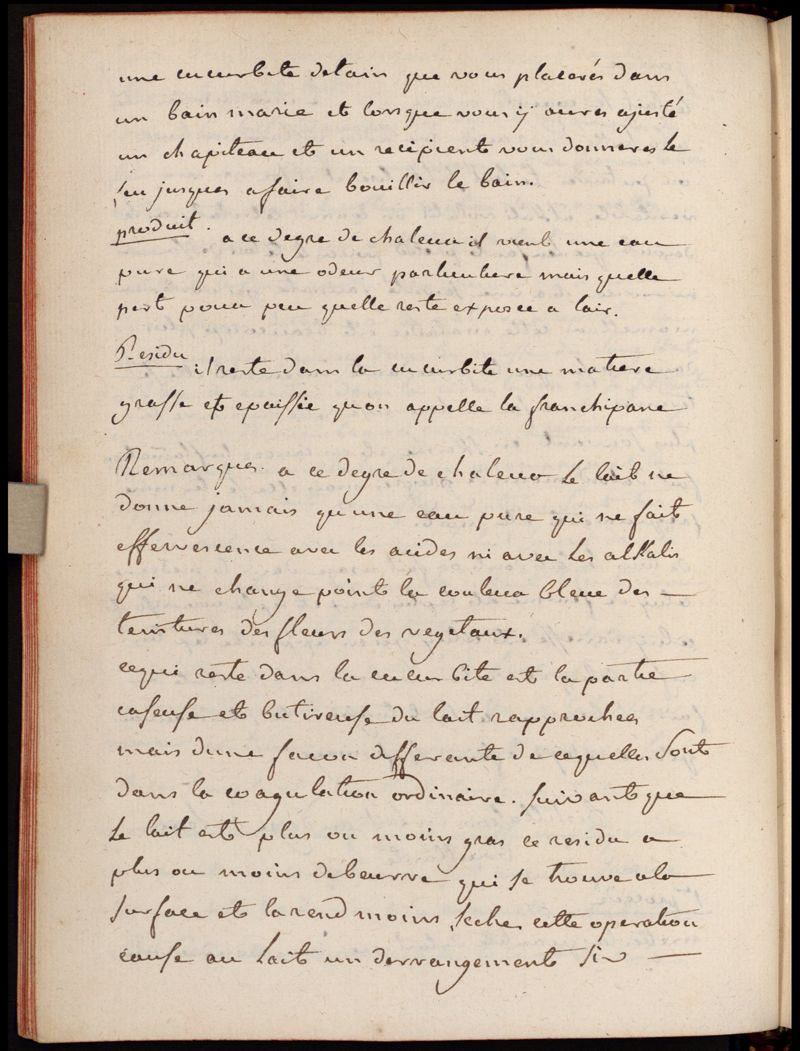 une cucurbite detain que vous placerés dans
un bain marie et lorsque vous ÿ aures ajusté
un chapiteau et un recipient vous donneres le
feu jusques a faire bouillir le bain.
produit.
a ce degre de chaleur il vient une eau
pure qui a une odeur particuliere mais quelle
pert pour peu quelle reste exposee a lair.
Residu
il reste dans la cucurbite une matiere
grasse et epaissie quon appelle la franchipane
Remarques. a ce degre de chaleur le lait ne
donne jamais qu une eau pure qui ne fait
effervescence avec les acides ni avec les alkalis
qui ne change point la couleur bleue des —
teintures des fleurs des vegetaux.
cequi reste dans la cucurbite est la partie
caseuse et butireuse du lait rapprochees
mais dune facon differante de cequelles sont
dans la coagulation ordinaire. suivant que
le lait est plus ou moins gras ce residu a
plus ou moins debeurre qui se trouve a la
surface et la rend moins seche, cette operation
cause au lait un derrangement si —